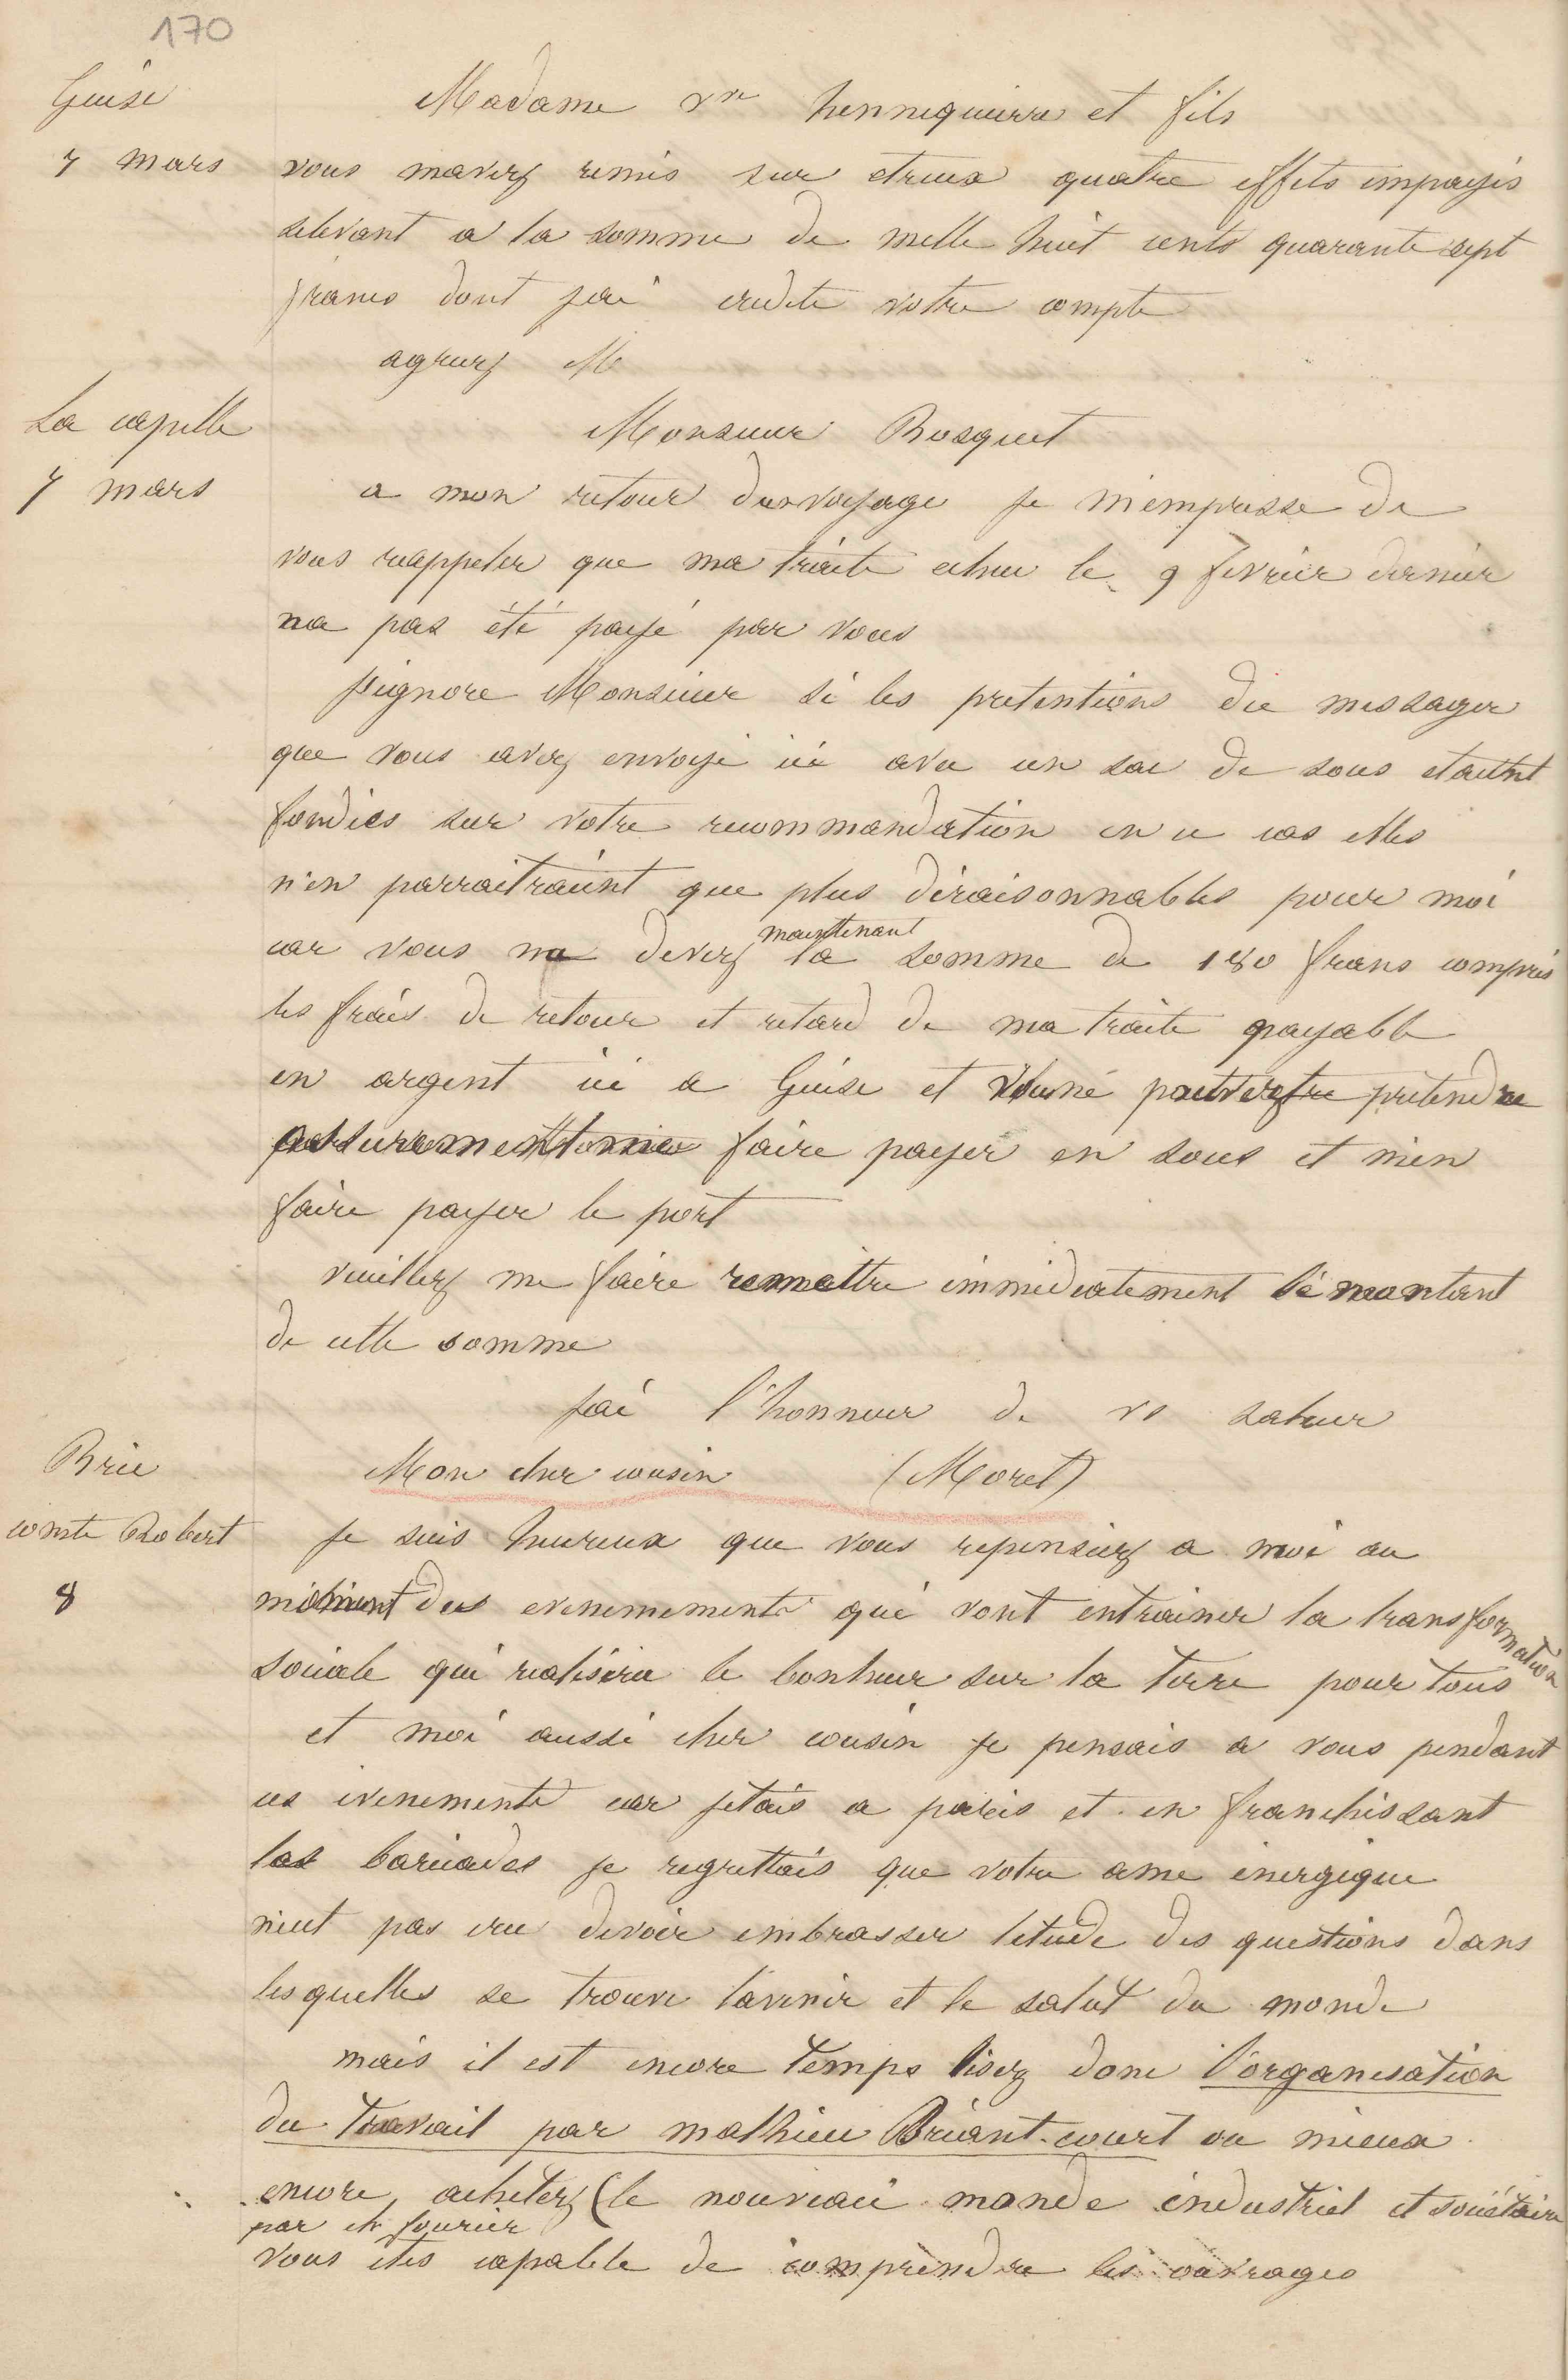 170
Guise
Madame vve hennequierre et fils
7 mars
vous mavez remis sur etreux quatre effets impayés
selevant a la somme de mille huit cents quarante sept
francs dont jai credite votre compte
agreez M
La capelle
Monsieur Bosquet
7 mars
a mon retour du voyage je m'empresse de
vous reappeler que ma traite echue le 9 fevrier dernier
na pas été payé par vous
jignore Monsieur si les pretentions du messager
que vous avez envoyé ici avec un sac de sous etaient
fondées sur votre recommandation en ce cas elles
n'en parraitraient que plus déraisonnables pour moi
maintenant
car vous me devez la somme de 180 frans compris
les frais de retour et retard de ma traite payable
en argent ici a Guise et prétendre
faire payer en sous et m'en
faire payer le port
veuillez me faire remettre immediatement le montant
de cette somme
jai l'honneur de vs saluer
Brie
Mon cher cousin (Moret)
comte Robert
je suis heureux que vous repensiez a moi au
8
moment des evenemements qui vont entrainer la transformation
sociale qui realisera le bonheur sur la terre pour tous
et moi aussi cher cousin je pensais a vous pendant
ces evenements car jetais a paris et en franchissant
les baricades je regrettais que votre ame énergique
n'eut pas cru devoir embrasser letude des questions dans
lesquelles se trouve l'avenir et le salut du monde
mais il est encore temps lisez donc l'organisation
du travail par mathieu Briant-court ou mieux
encore achetez (le nouveau monde industriel et sociétaire
par ch fourier
vous etes capable de comprendre les ouvrages